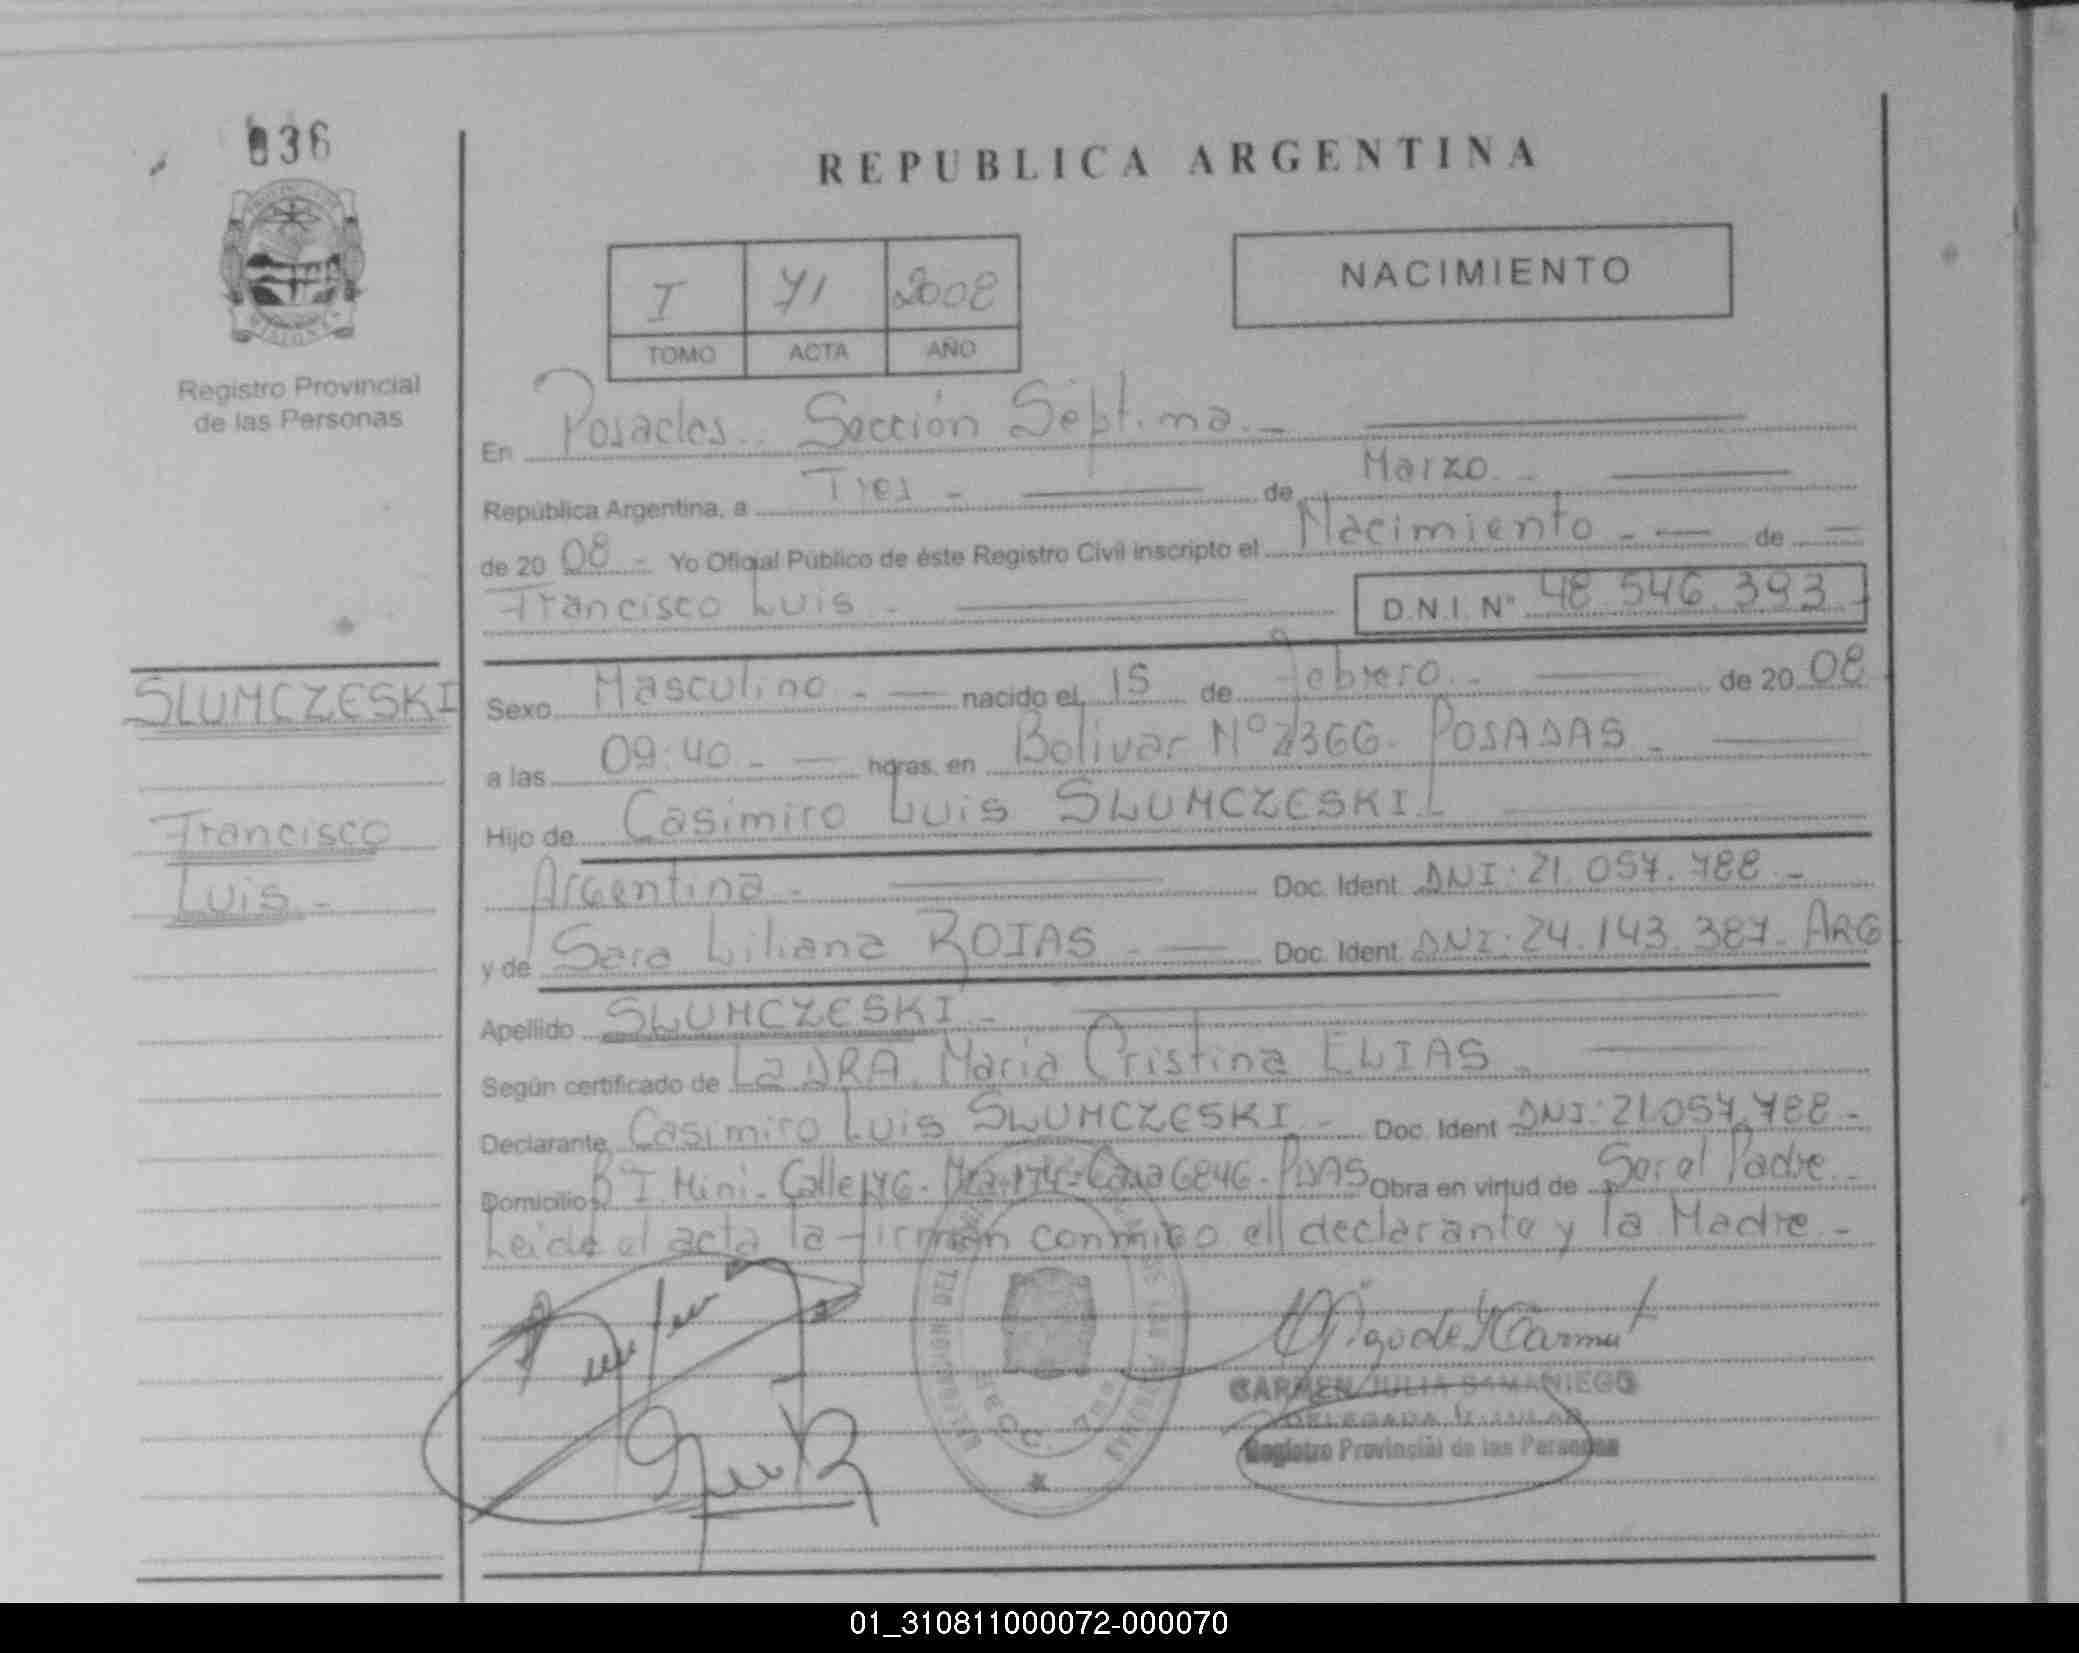 036
REPUBLICA ARGENTINA
I 71 2008
TOMO ACTA AÑO
NACIMIENTO
Registro Provincial
de las Personas
En Posadas. Sección Séptima.-
República Argentina, a Tres - de Marzo.-
de 2008 - Yo Oficial Público de éste Registro Civil inscripto el Nacimiento - de
Francisco Luis -
D.N.I. Nº 48.546.393
SLUMCZESKI
Francisco
Luis -
Sexo Masculino - nacido el 15 de Febrero.- de 2008
a las 09:40 - horas, en Bolivar Nº 2366. POSADAS -
Hijo de Casimiro Luis SLUMCZESKI
Argentina - Doc. Ident. DNI: 21.057.788 -
y de Sara Liliana ROJAS - Doc. Ident. DNI: 24.143.387. ARG
Apellido SLUMCZESKI -
Según certificado de La DRA. Maria Cristina ELIAS -
Declarante Casimiro Luis SLUMCZESKI - Doc. Ident. DNI: 21.057.788 -
Domicilio Bº I. Mini - Calle 176 - Casa 6846 - PDAS Obra en virtud de Ser el Padre -
Leida el acta la firman conmigo el declarante y la Madre -
CARMEN JULIA SAMANIEGO
DELEGADA TITULAR
Registro Provincial de las Personas
01_310811000072-000070